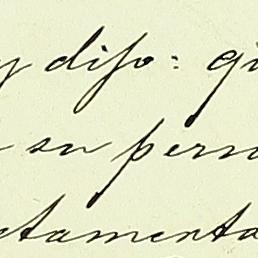 y dijo: qu
su pers
tamenta